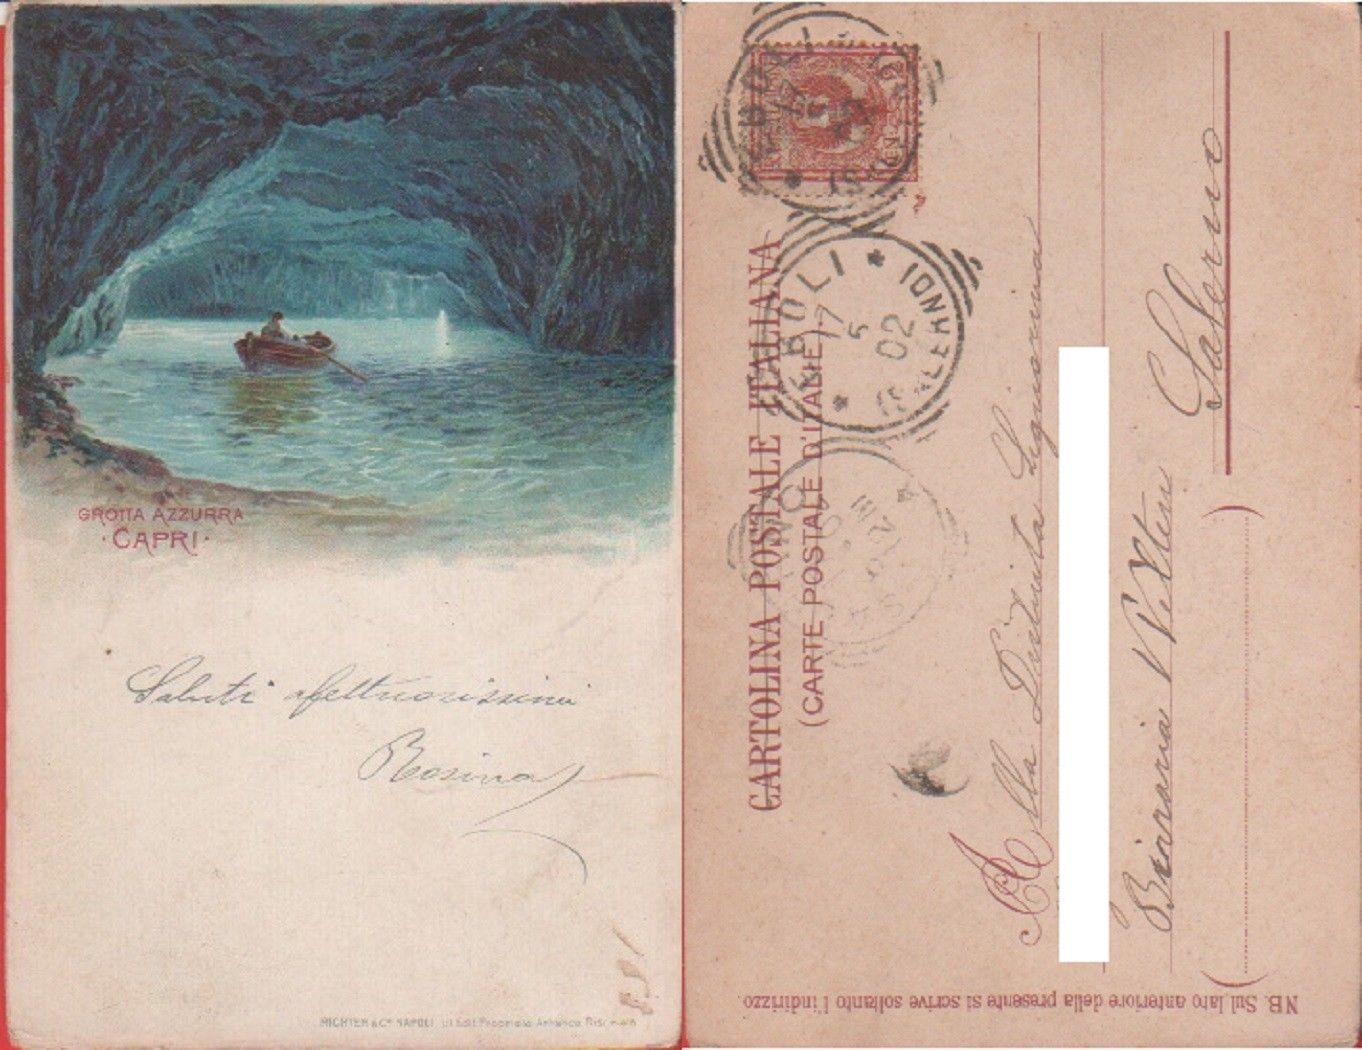 GROTTA AZZURRA
· CAPRI ·
Saluti affettuosissimi
Rosina
RICHTER & Cº NAPOLI
CARTOLINA POSTALE ITALIANA
(CARTE POSTALE D'ITALIE)
EBOLI * (SALERNO) *
17
5
02
Alla Distinta Signorina
Salerno
NB. Sul lato anteriore della presente si scrive soltanto l'indirizzo.